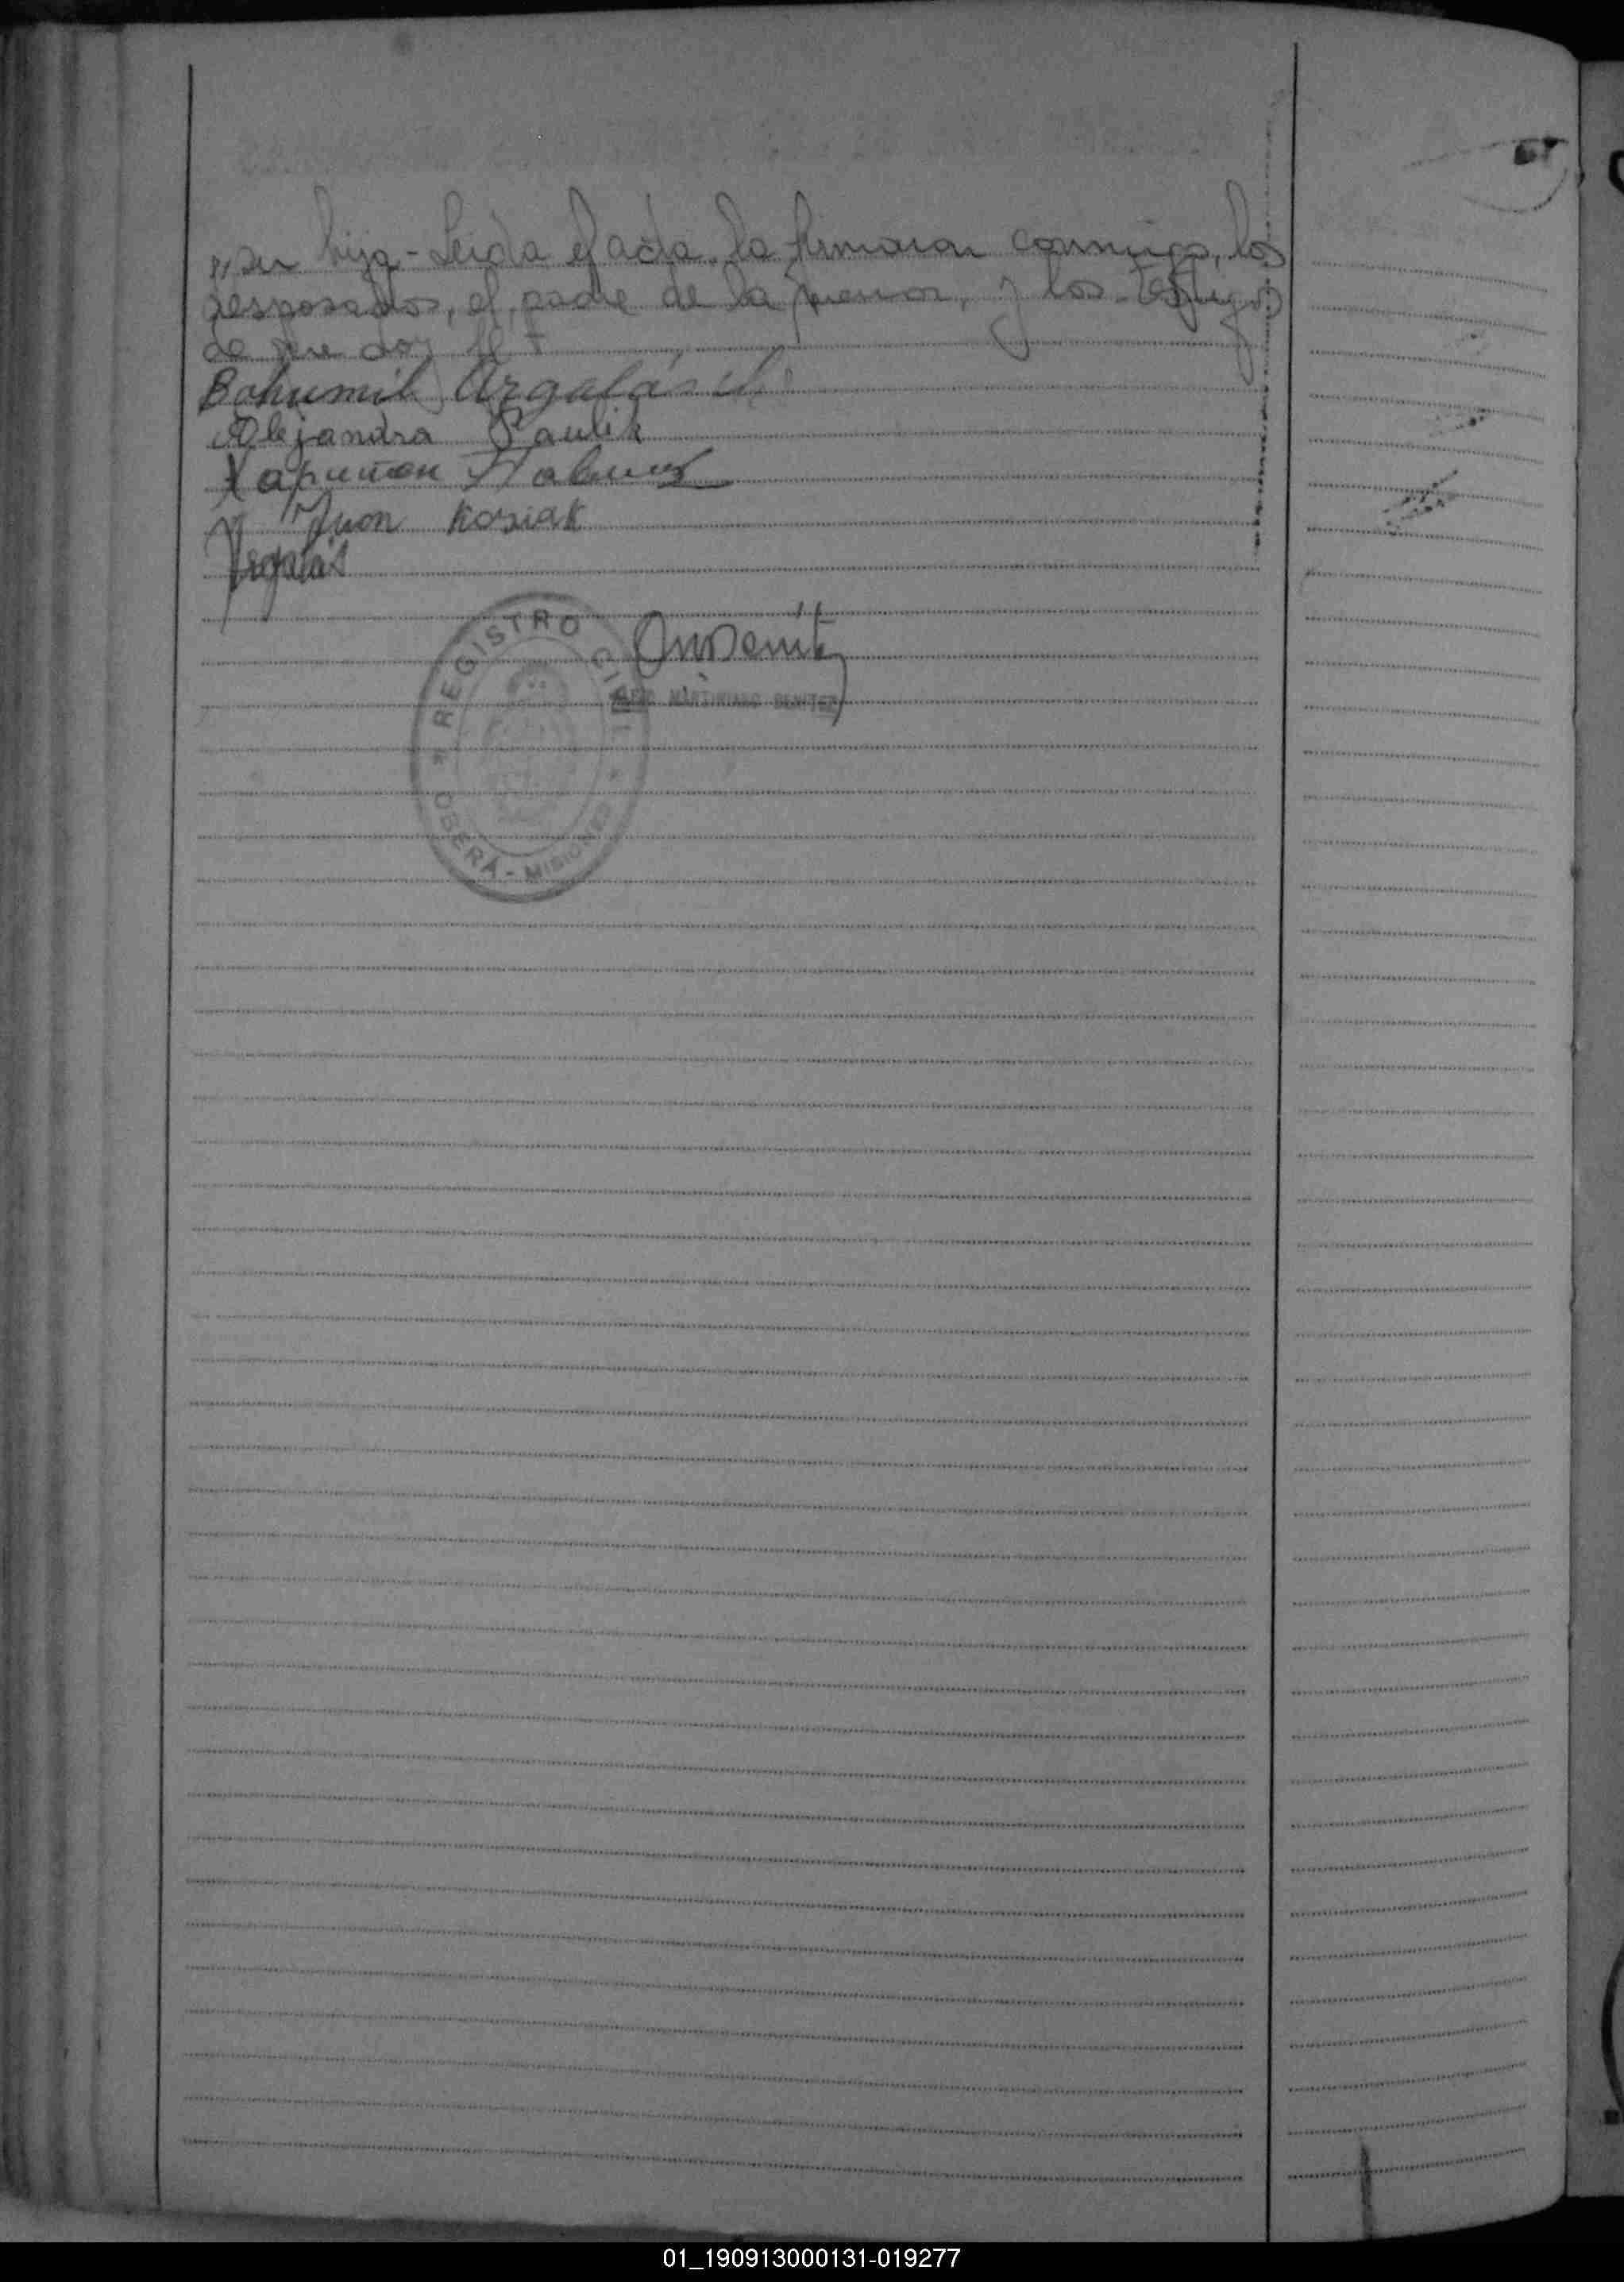 "su hija - Leida el acta, la firmaron conmigo, los
desposados, el padre de la menor, y los testigos
de que doy fé
Bohumil Argalás
Alejandra Paulik
Juan Koziak
Argalás
REGISTRO CIVIL
OBERÁ - MISIONES
MARTINIANO BENITEZ
01_190913000131-019277